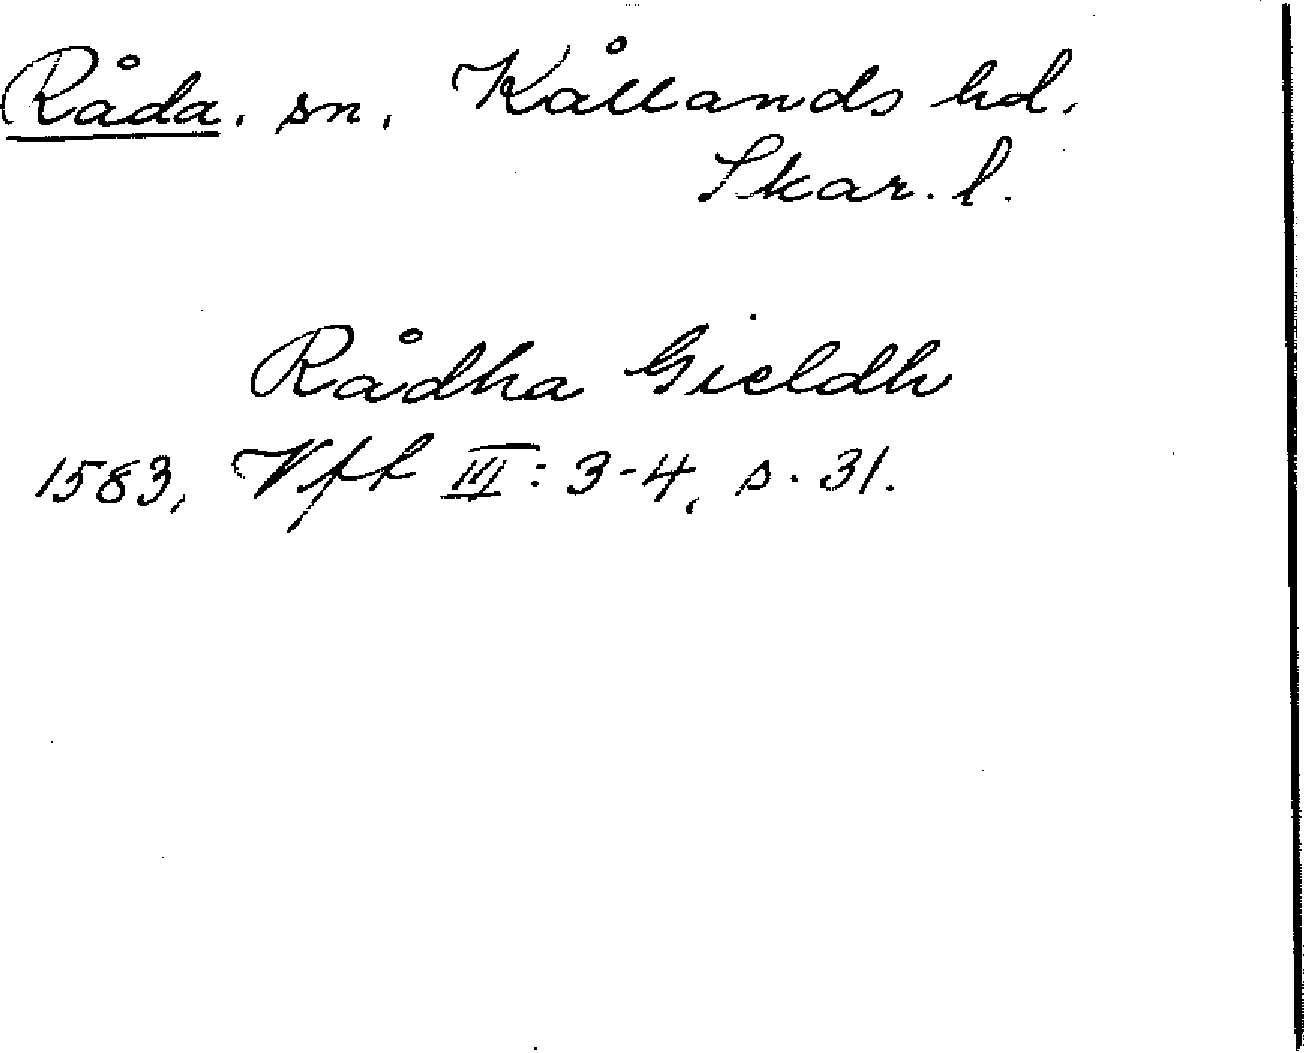 Råda. sn. Kållands hd.
Skar. l.
Rådha Gieldh
1583, Vff III: 3-4, s. 31.